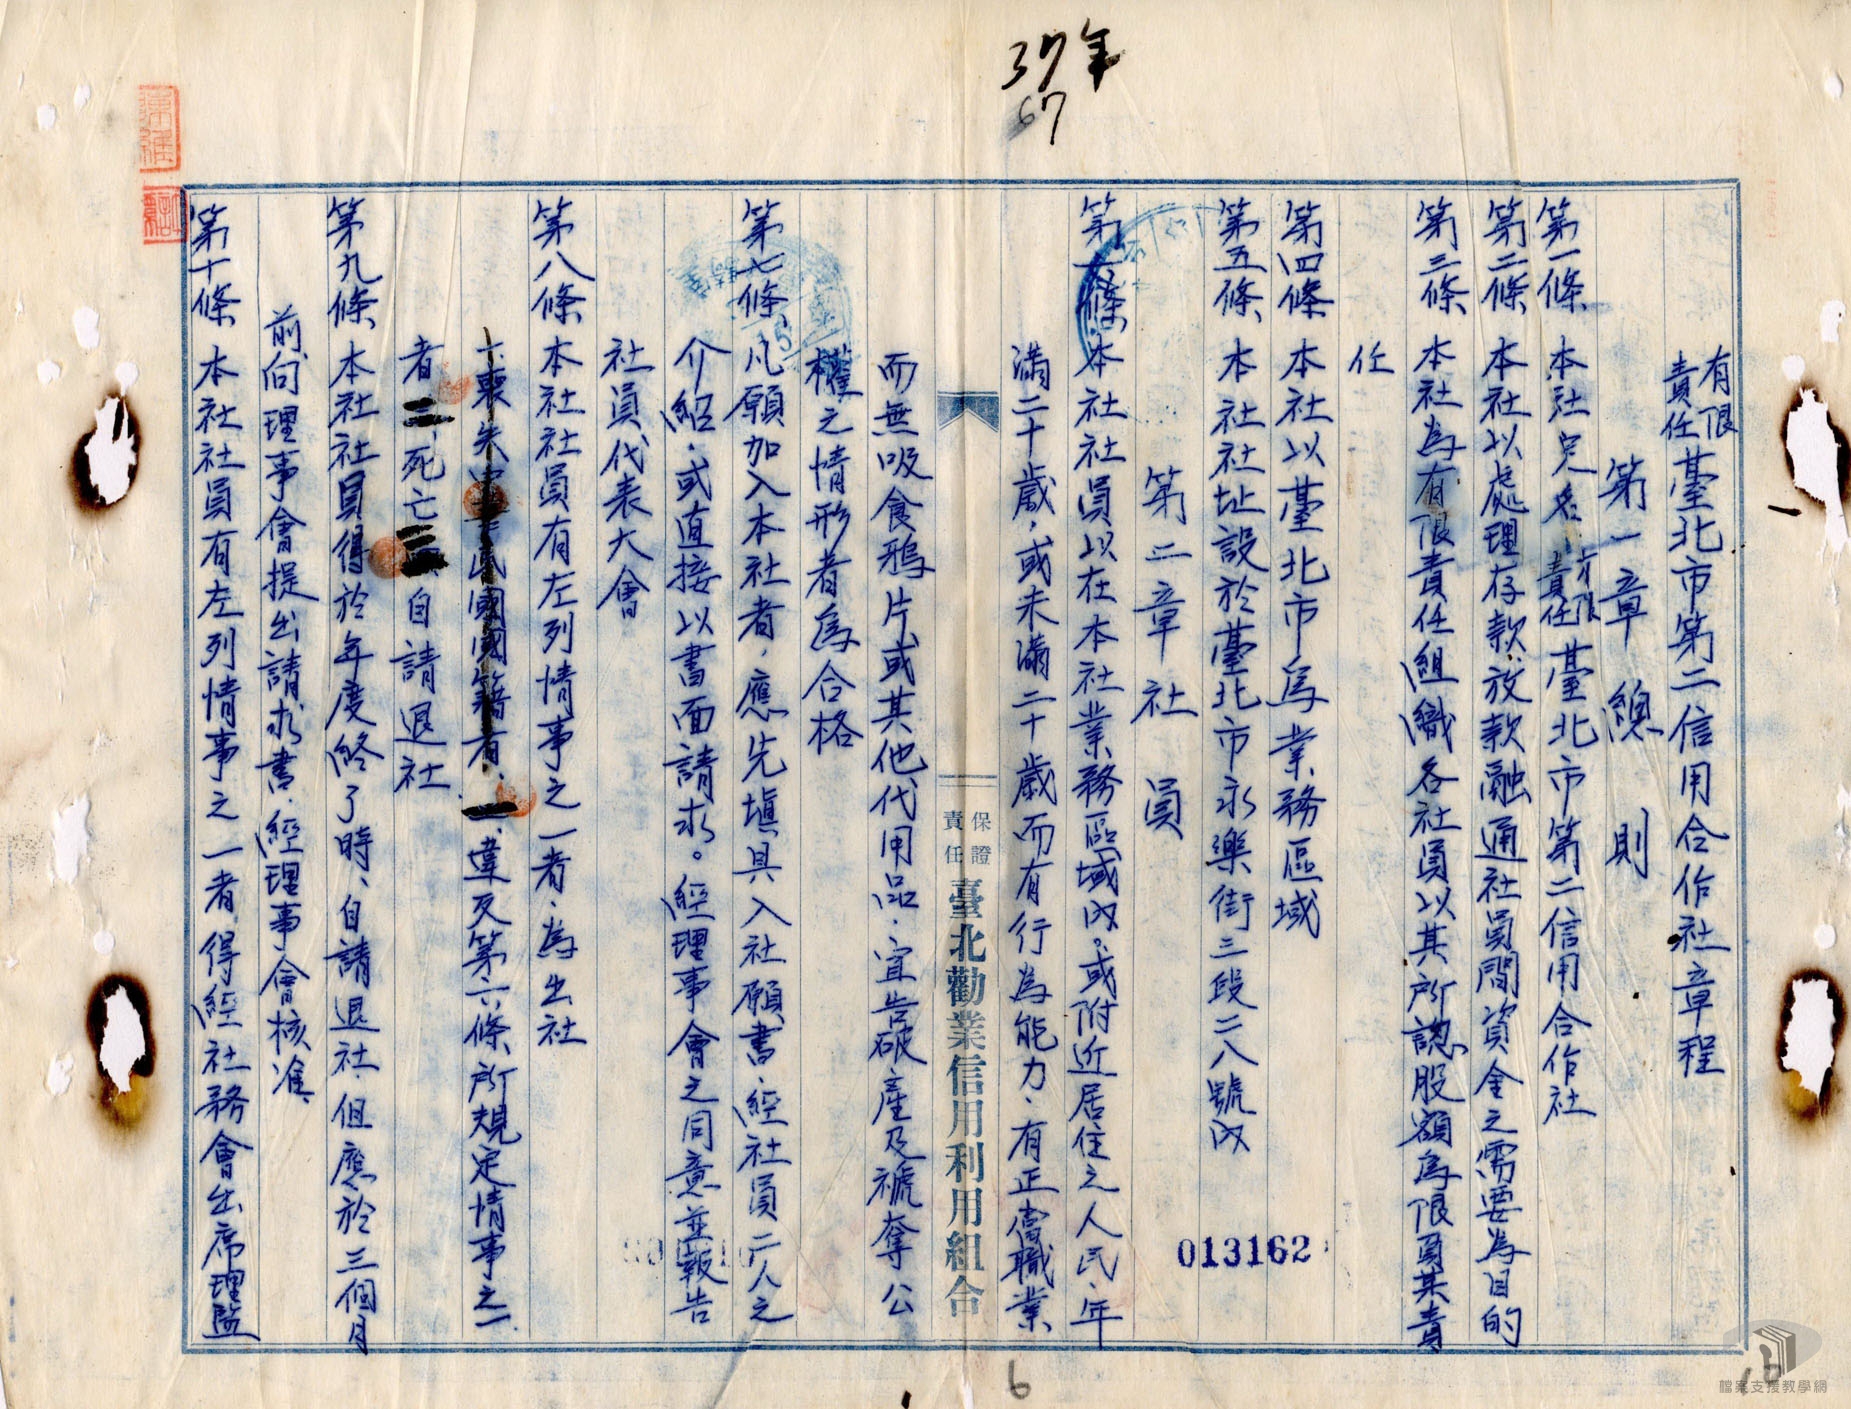 37年
67
有限責任臺北市第二信用合作社章程
第一章 總則
第一條、本社定名：有限責任臺北市第二信用合作社
第二條、本社以處理存款、放款融通社員間資金之需要為目的
第三條、本社為有限責任組織各社員以其所認股額為限負其責
任
第四條、本社以臺北市為業務區域
第五條、本社社址設於臺北市永樂街三段二八號內
第二章 社員
第六條、本社社員以在本社業務區域內。或附近居住之人民、年
滿二十歲、或未滿二十歲而有行為能力、有正當職業
保證責任臺北勸業信用利用組合
而無吸食鴉片或其他代用品、宣告破產及褫奪公
權之情形者為合格
第七條、凡願加入本社者、應先填具入社願書、經社員二人之
介紹、或直接以書面請求。經理事會之同意並報告
社員代表大會
第八條、本社社員有左列情事之一者、為出社
一、喪失中華民國國籍者、一、違反第六條所規定情事之一
者二、死亡三、自請退社
第九條、本社社員得於年度終了時、自請退社、但應於三個月
前向理事會提出請求書、經理事會核准
第十條、本社社員有左列情事之一者、得經社務會出席理監
013162
6
10
檔案支援教學網